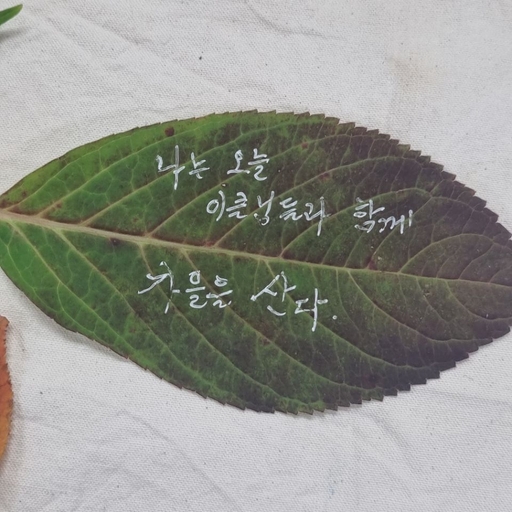 나는 오늘
이른벗들과 함께
가을을 산다.